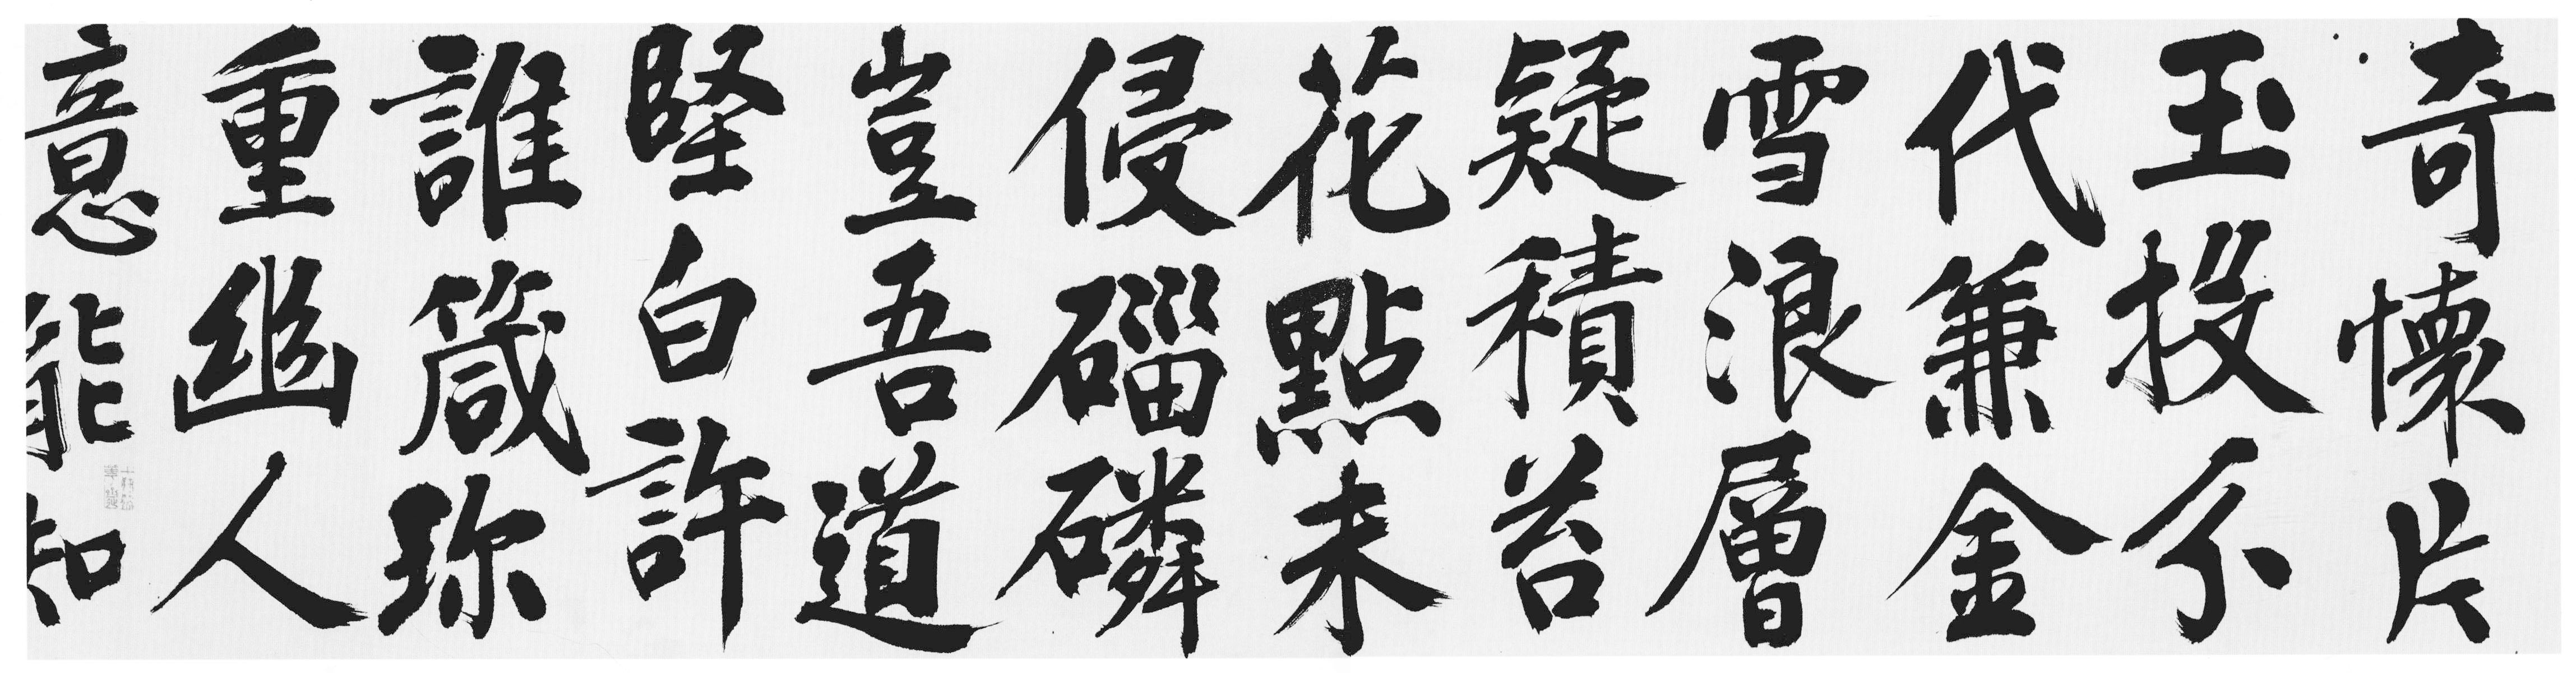 奇懷片
玉投分
代兼金
雪浪層
疑積苔
花點未
侵磂磷
豈吾道
堅白許
誰箴珎
重幽人
意能知